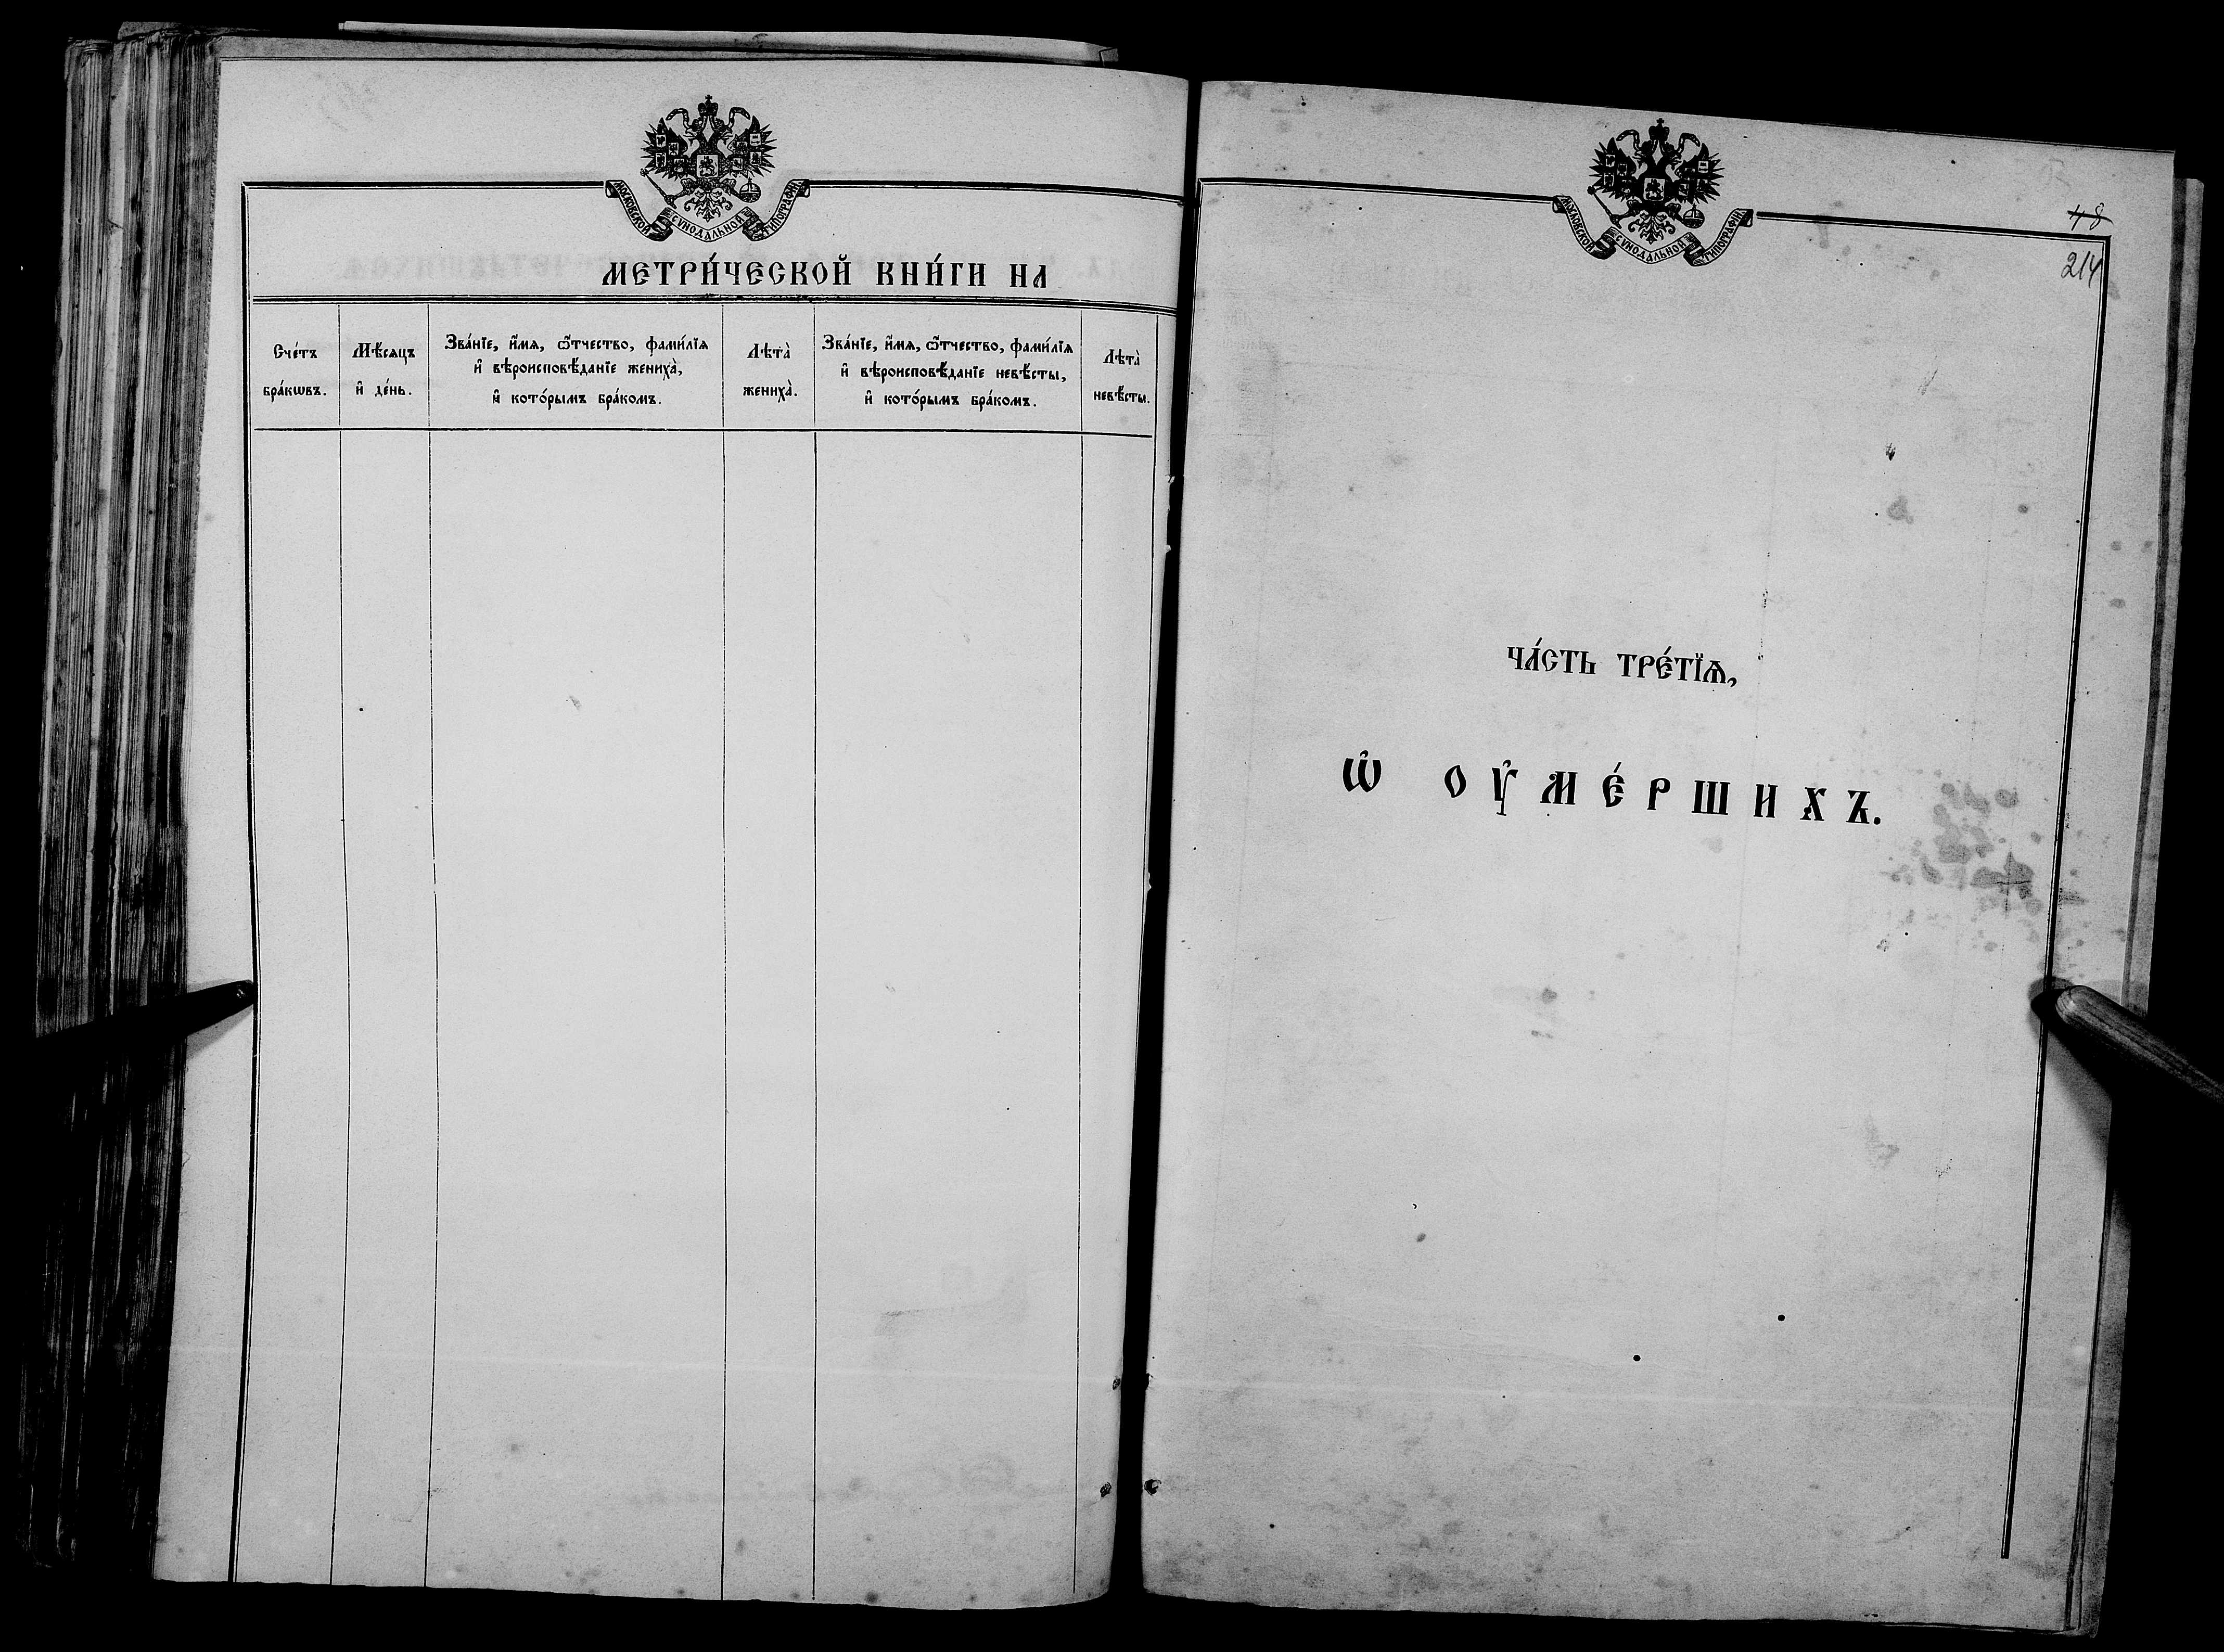 МОСКОВСКОЙ СУНОДАЛЬНОЙ ТИПОГРАФІИ
МЕТРИ́ЧЕСКОЙ КНИ́ГИ НА
Сче́тъ бра́кѡвъ.
Мѣ́сяцъ и҆ де́нь.
Зва́нїе, и҆́мя, ѻ҆́тчество, фами́лїя
и҆ вѣроисповѣ́данїе жениха̀,
и҆ кото́рымъ бра́комъ.
Лѣта̀ жениха̀.
Зва́нїе, и҆́мя, ѻ҆́тчество, фами́лїя
и҆ вѣроисповѣ́данїе невѣ́сты,
и҆ кото́рымъ бра́комъ.
Лѣта̀ невѣ́сты.
МОСКОВСКОЙ СУНОДАЛЬНОЙ ТИПОГРАФІИ
48
214
ЧА́СТЬ ТРЕ́ТЇѦ,
Ѡ҆ ОУ҆МЕ́РШИХЪ.